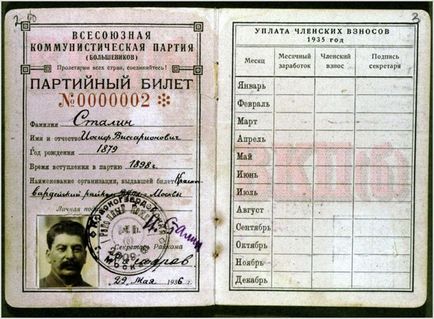 ВСЕСОЮЗНАЯ
КОММУНИСТИЧЕСКАЯ ПАРТИЯ
(БОЛЬШЕВИКОВ)
Пролетарии всех стран, соединяйтесь!
ПАРТИЙНЫЙ БИЛЕТ
№0000002
Фамилия Сталин
Имя и отчество Иосиф Виссарионович
Год рождения 1879
Время вступления в партию 1898 г.
Наименование организации, выдавшей билет Красно
гвардейский Москвы
Личная
Секретарь Райкома
29 мая 1936 г.
3
УПЛАТА ЧЛЕНСКИХ ВЗНОСОВ
1935 год
Месяц Месячный заработок Членский взнос Подпись секретаря
Январь
Февраль
Март
Апрель
Май
Июнь
Июль
Август
Сентябрь
Октябрь
Ноябрь
Декабрь
ВКП(б)